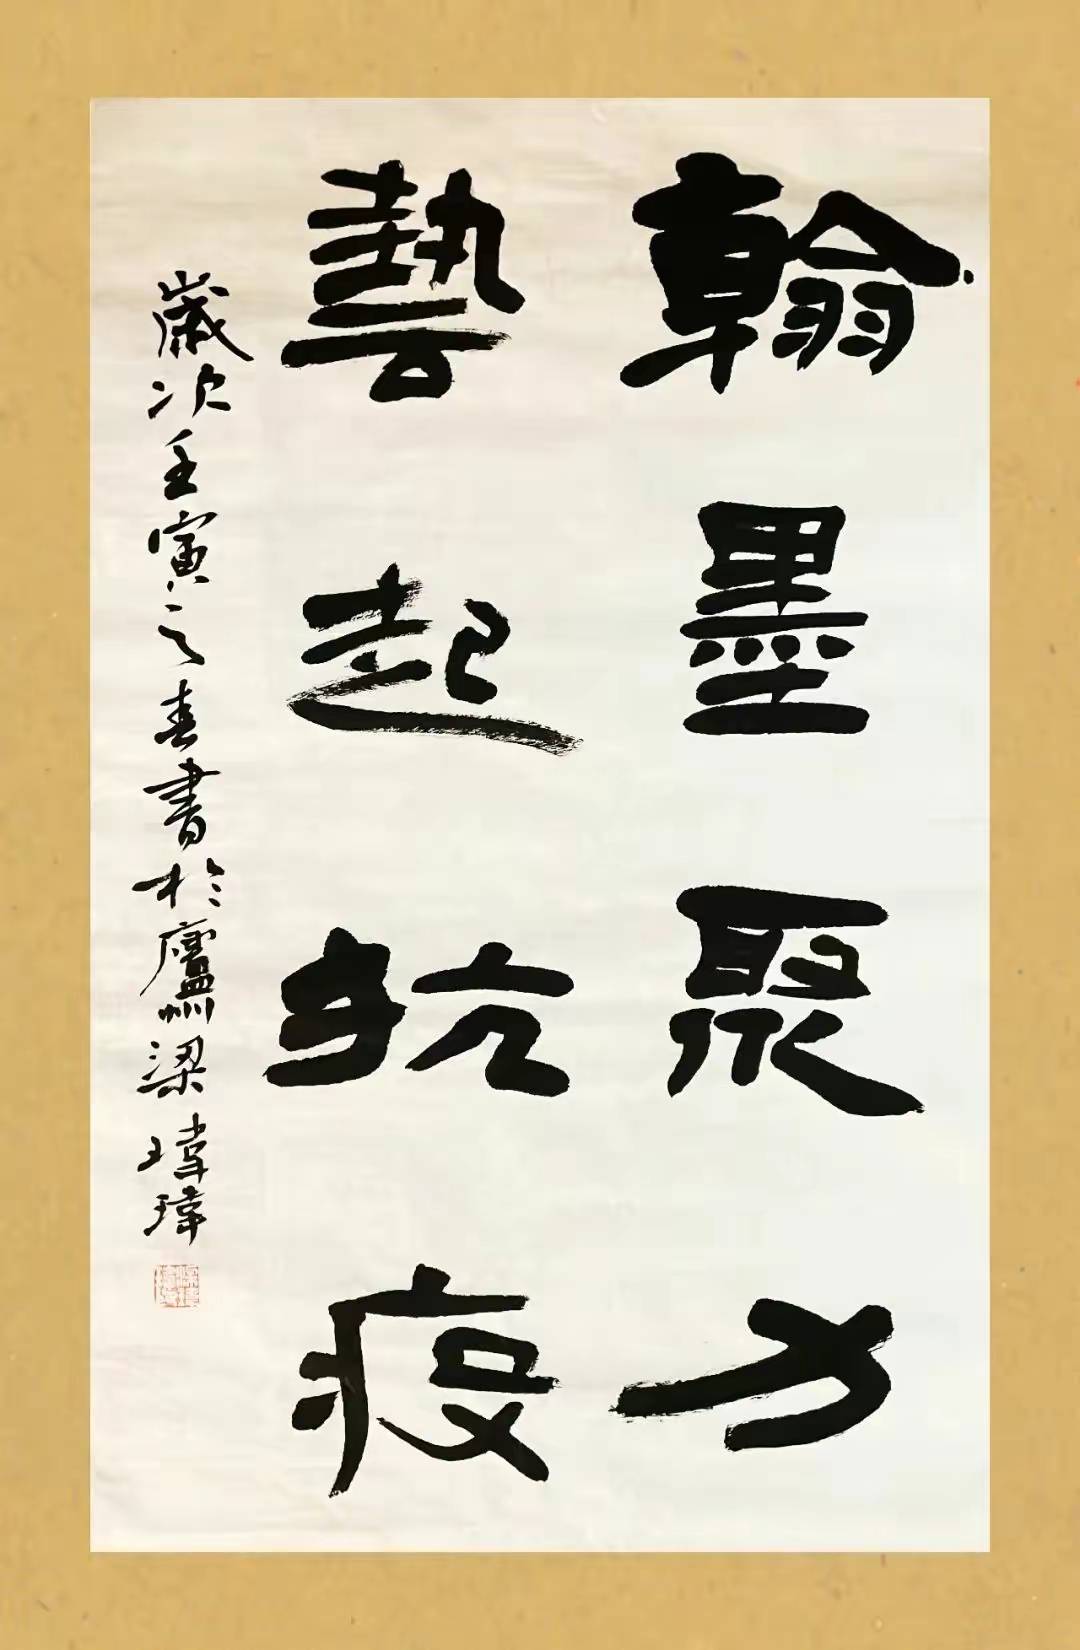 翰墨聚力
藝起抗疫
歲次壬寅之春書於廬州梁瑋瑋